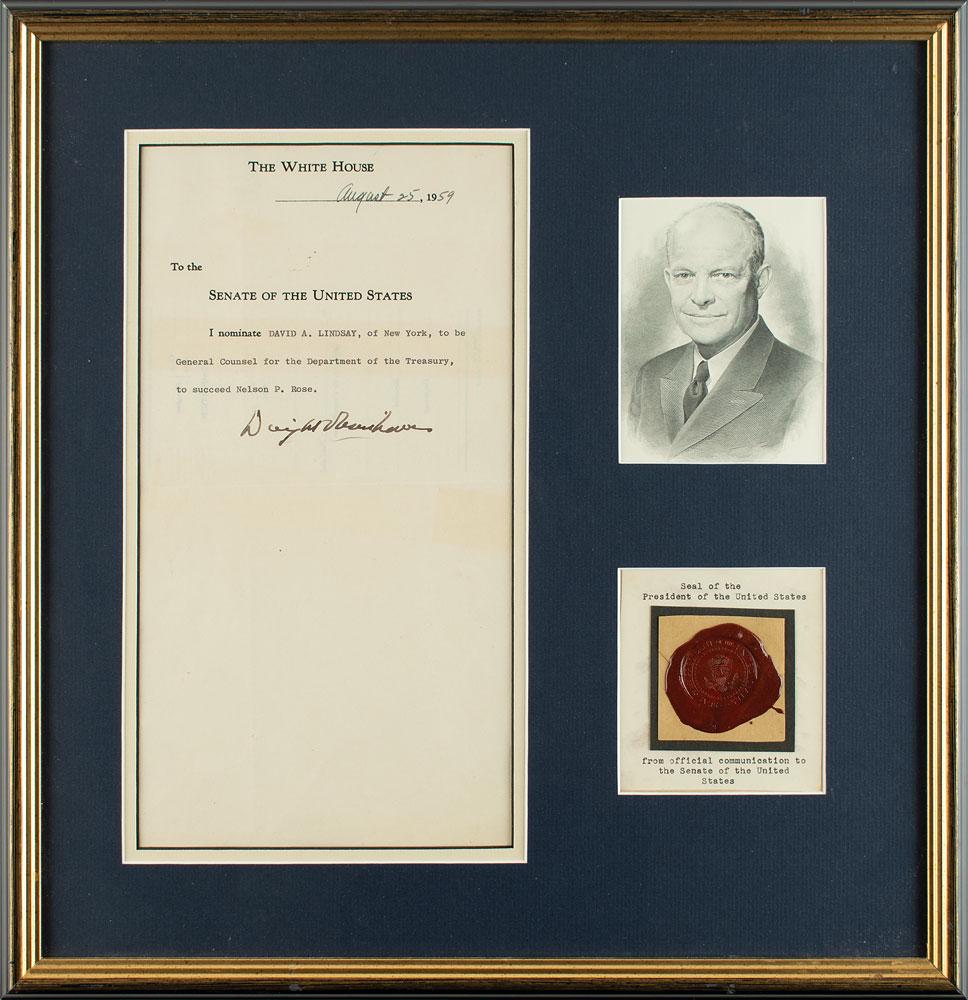 THE WHITE HOUSE
August 25, 1959
To the
SENATE OF THE UNITED STATES
I nominate DAVID A. LINDSAY, of New York, to be
General Counsel for the Department of the Treasury,
to succeed Nelson P. Rose.
Dwight D Eisenhower
Seal of the
President of the United States
from official communication to
the Senate of the United
States